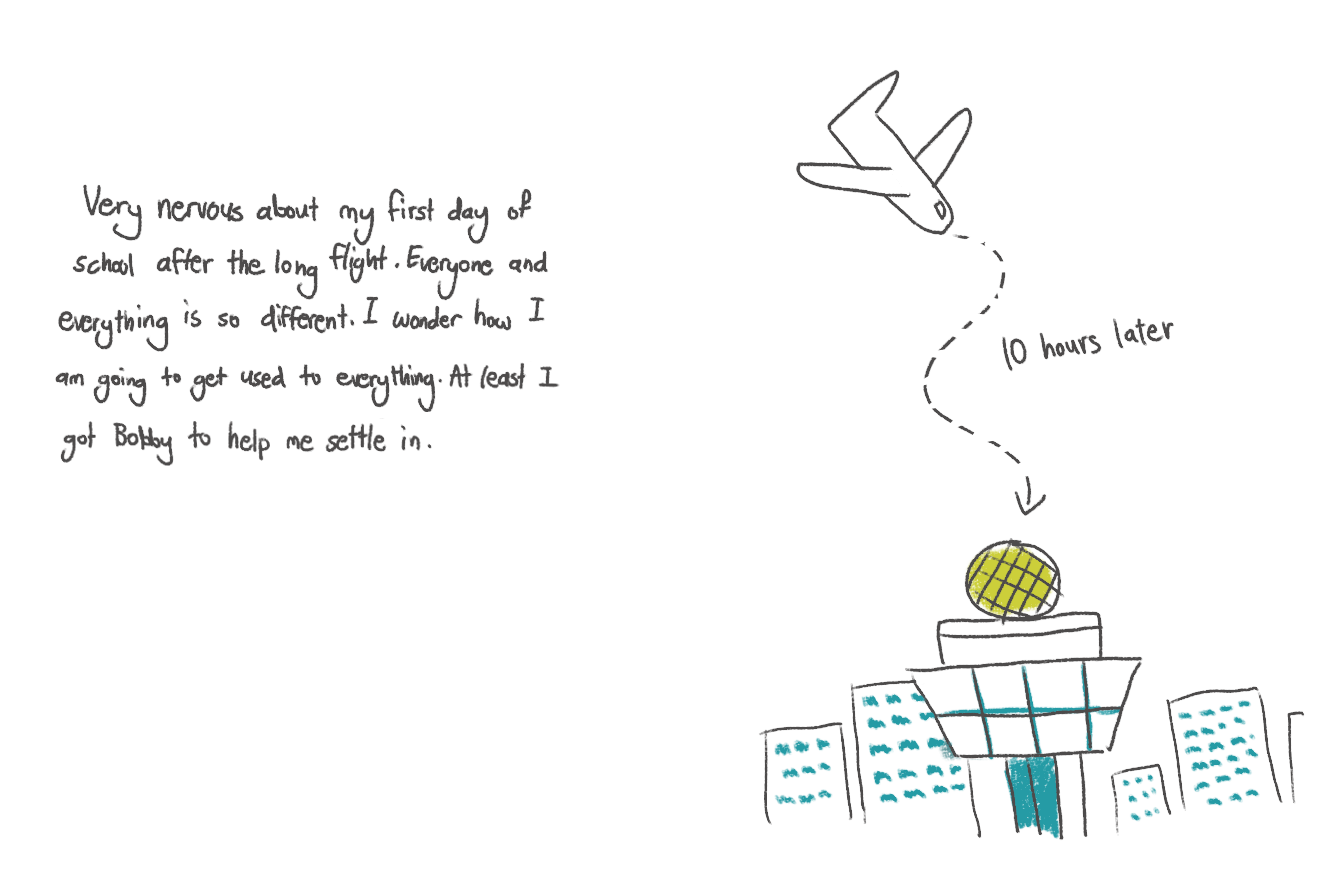 Very nervous about my first day of
school after the long flight. Everyone and
everything is so different. I wonder how I
am going to get used to everything. At least I
got Bobby to help me settle in.
10 hours later